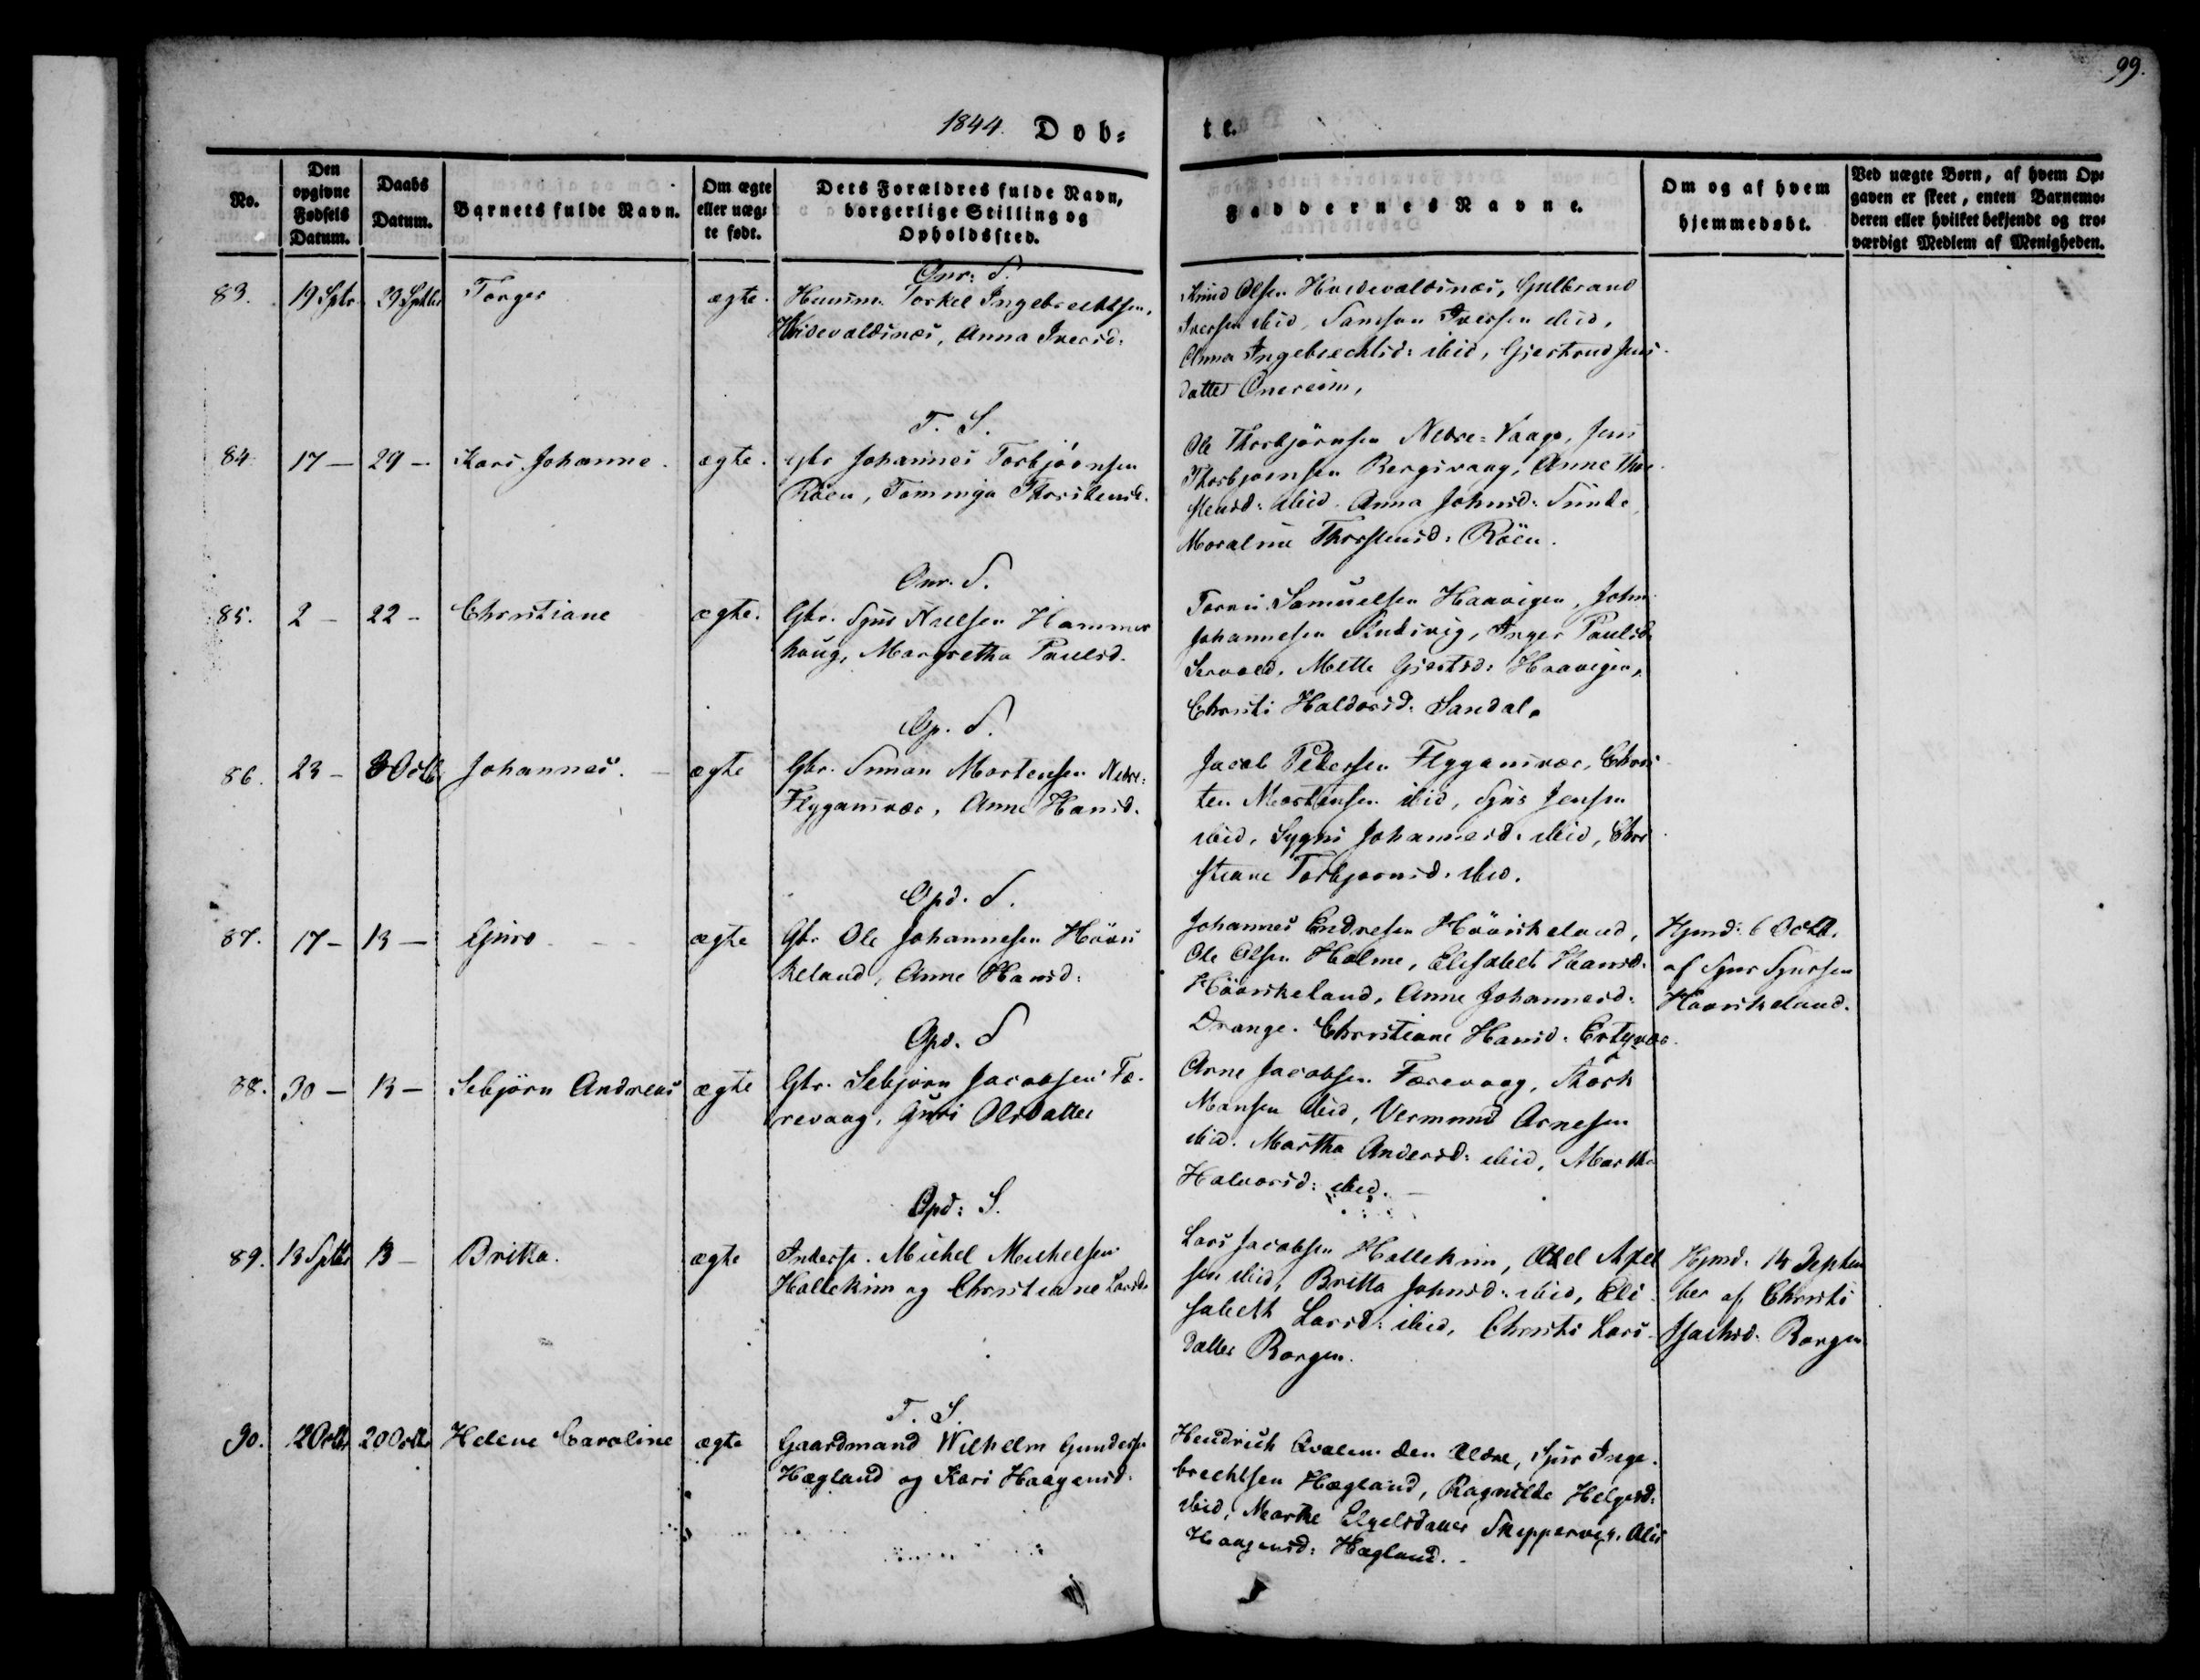 99.
1844. Døb=
te.
No.
Den opgivne Fødsels Datum.
Daabs Datum.
Barnets fulde Navn.
Om ægte eller uæg=te født.
Dets Forældres fulde Navn, borgerlige Stilling og Opholdssted.
Faddernes Navne.
Om og af hvem hjemmedøbt.
Ved uægte Børn, af hvem Op=gaven er skeet, enten Barnemo=deren eller hvilket bekjendt og tro=værdigt Medlem af Menigheden.
Onr: S.
83. 19 Sptr. 29 Sptbr Torger ægte. Huusm. Torkel Ingebrechtsen,
Hvidevaldsnæs, Anna Iversd:
Knud Olsen Hvidevaldsnæs, Gulbrand
Iversen ibid, Samson Iversen ibid,
Anna Ingebrechtsd: ibid, Gjertrud Jens
datter Onereim,
T. S.
84. 17 — 29 — Kari Johanne. ægte. Gbr Johannes Torbjørnsen
Røen, Tommine Thorstensd.
Ole Thorbjørnsen Nedre=Vaage, Jens
Thorbjørnsen Bergsvaag, Anne Thor
stensd: ibid. Anna Johnsd: Sunde,
Thorstensd: Røen.
Onr. S.
85. 2 — 22 — Christiane ægte. Gbr. Sjur Nielsen Hammer
haug, Margretha Paulsd.
Samuelsen Haavigen, John
Johannesen Andsvig, Inger Paulsd.
Mette Gjertsd: Haavigen,
Christi Haldorsd: Sandal.
Op. S.
86. 23 — 8 Octb Johannes. ægte Gbr. Simon Mortensen Nedre=
Flygansvær, Anne Hansd.
Jacob Pedersen Flygansvær, Chris
ten Mortensen ibid, Sjur Jensen
ibid, Sygni Johannesd. ibid, Chri
stiane Torbjørnsd. ibid.
Opd. S.
87. 17 — 13 — Guro ægte Gbr Ole Johannesen Høvis
keland, Anne Hansd:
Johannes Endresen Høviskeland,
Ole Olsen Holme, Elisabeth Hansd:
Høviskeland, Anne Johannesd:
Drange. Christiane Hansd. Eltgvær.
Hjmd: 6 Octb.
af Sjur Sjursen
Høviskeland.
Opd. S
88. 30 — 13 — Sebjørn Andreas ægte Gbr. Sebjørn Jacobsen Fæ=
revaag, Guri Olsdatter
Arne Jacobsen Færevaag,
Monsen ibid, Vermund Arnesen
ibid. Martha Andersd: ibid, Martha
Halvorsd: ibid.
Opd: S.
89. 13 Sptbr 13 — Britha. ægte Inderst. Michel Michelsen
Hallekim og Christiane Larsd:
Lars Jacobsen Hallekim, Axel Axel
sen ibid, Britta Johnsd: ibid, Eli
sabeth Larsd: ibid, Christi Lars=
datter Borgen.
Hjmd. 14 Septem
ber af Christi
Borgen
T. S.
90. 12 Octbr 20 Octbr Helene Caroline ægte Gaardmand Wilhelm Gunders.
Hægland og Kari Haagensd.
Hendrich Qvalen den Ældre, Sjur Inge=
brechtsen Hægland, Ragnilda Helgesd:
ibid, Marthe Elgelsdatter Skippervig, Alis
Haagensd: Hægland.